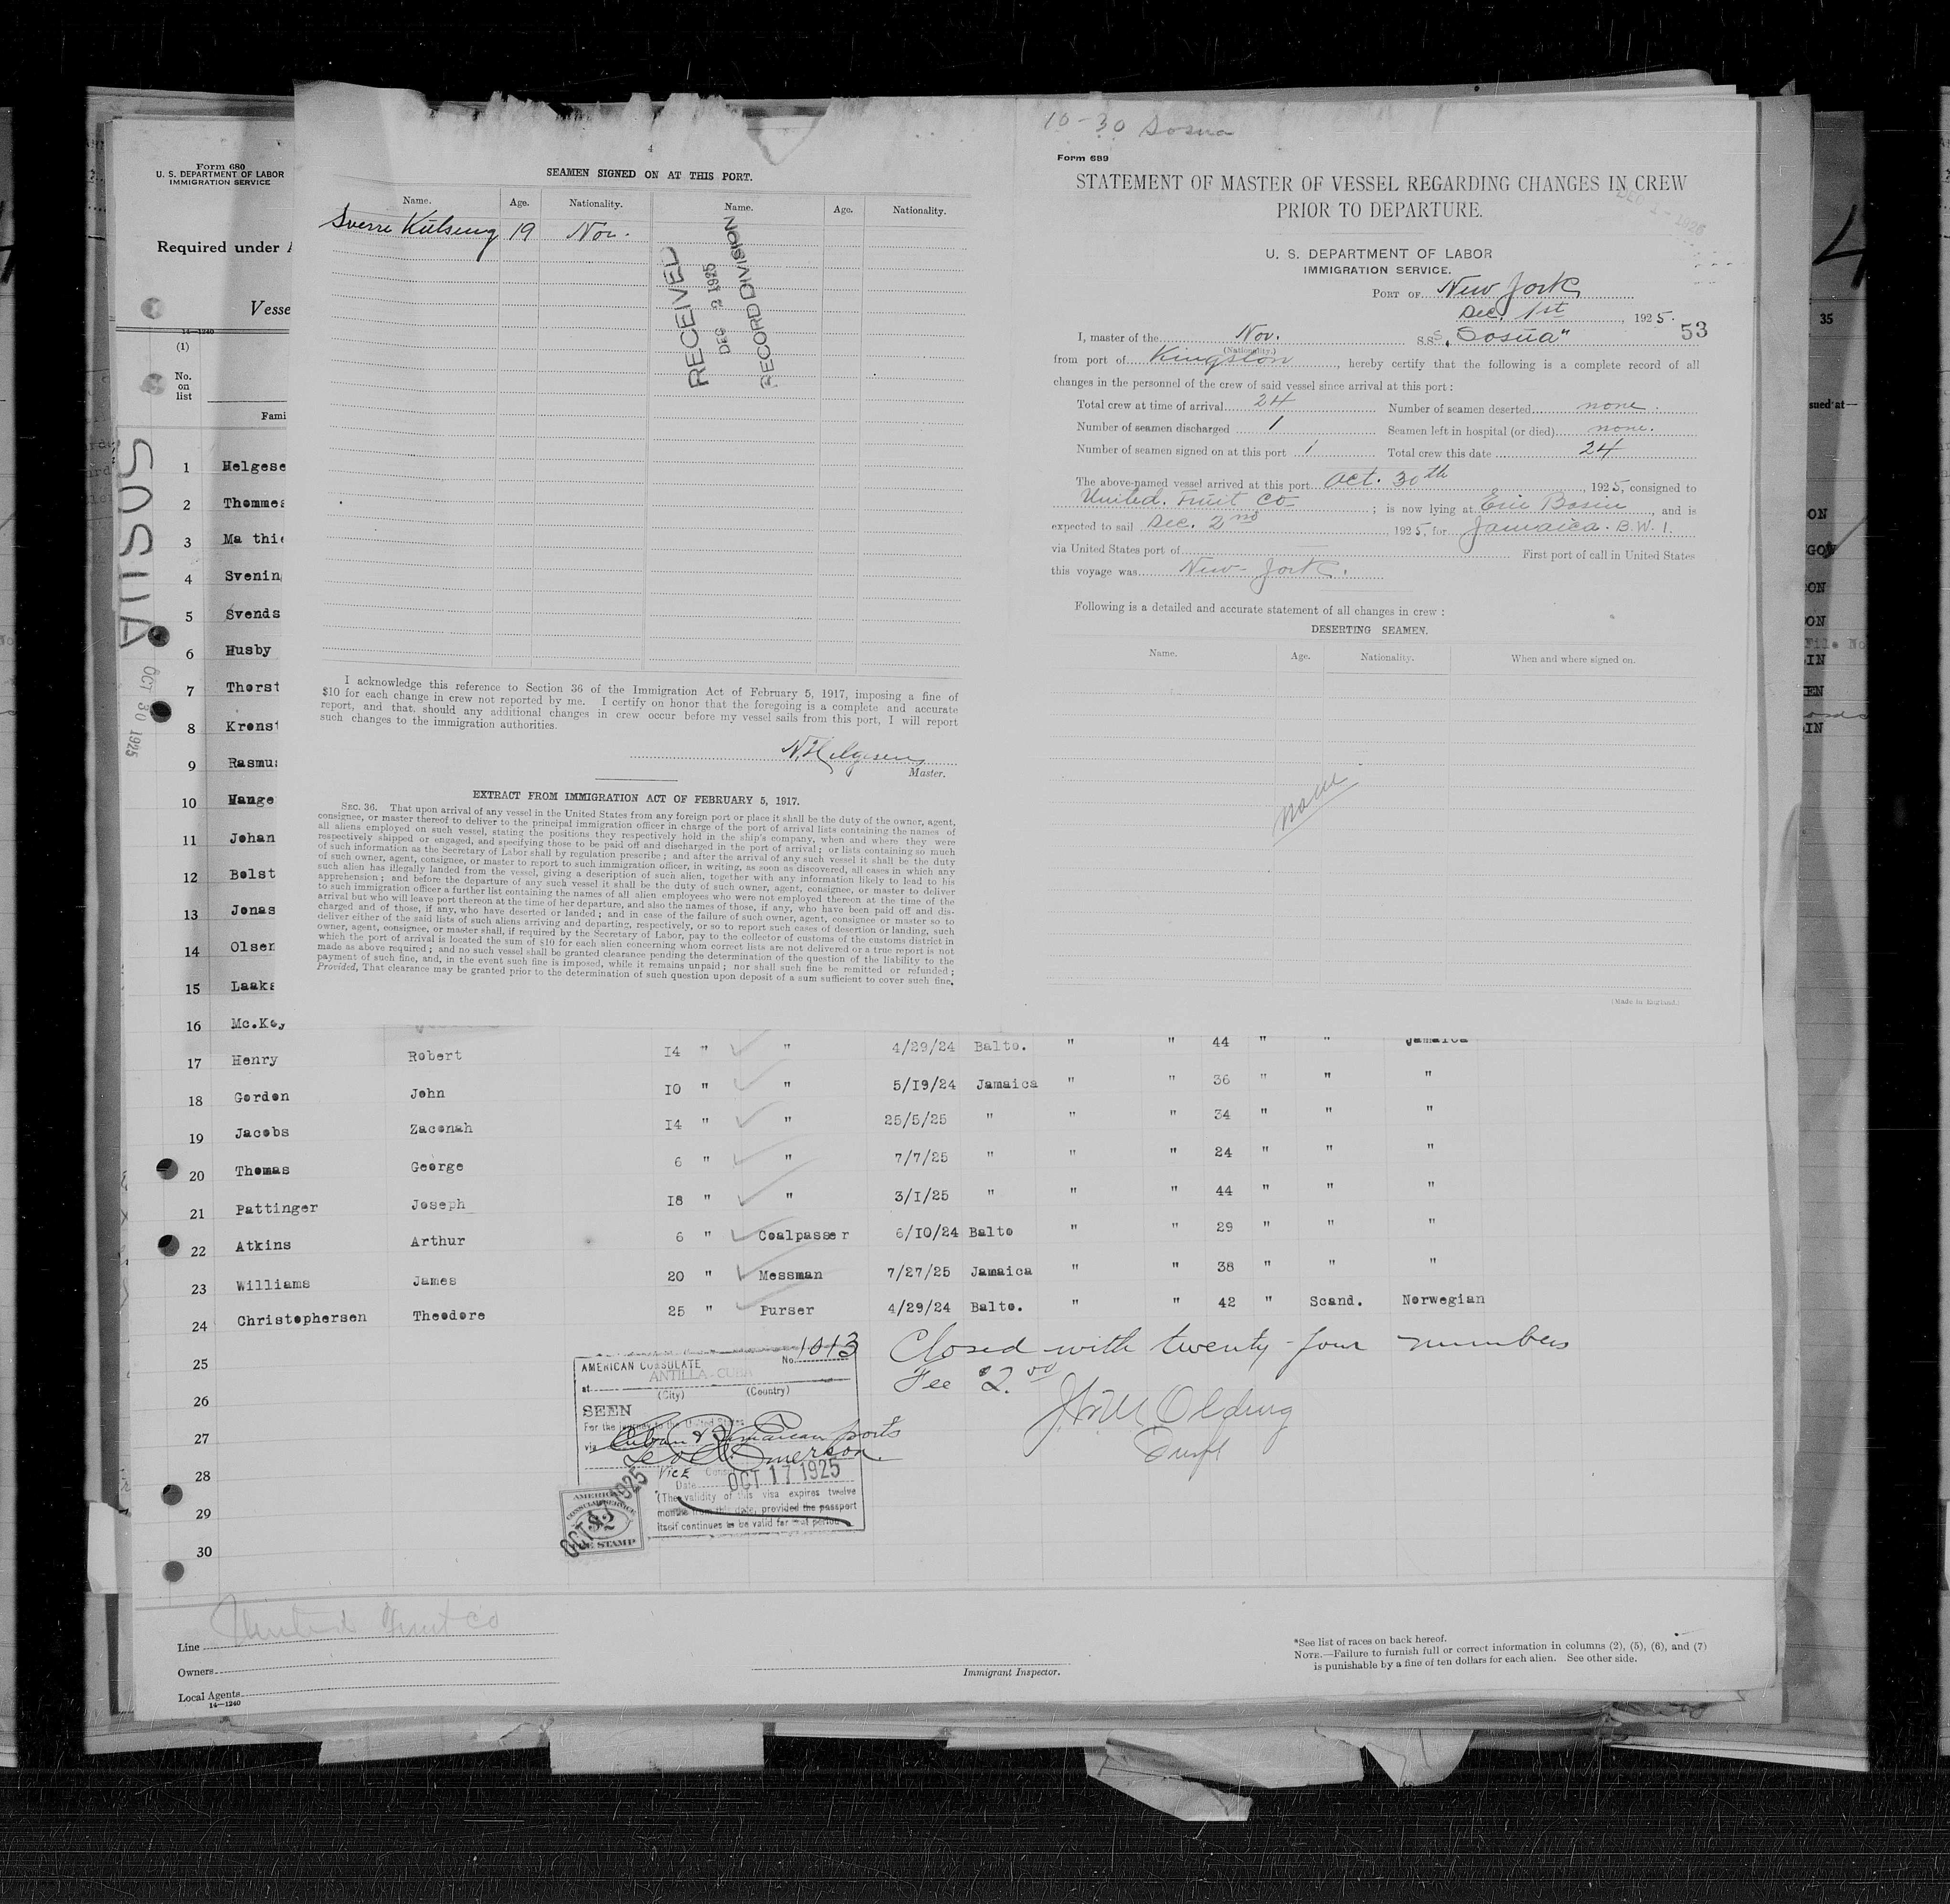 10-30 Sosua
Form 680
U. S. DEPARTMENT OF LABOR
IMMIGRATION SERVICE
Required under
Vesse
14—1240
(1)
No.
on
list
Fami
SOSUA
OCT 30 1925
1 Helgese
2 Thommes
3 Ma thie
4 Svenin
5 Svends
6 Husby
7 Thorst
8 Kronst
9 Rasmu
10 Hange
11 Johan
12 Bolst
13 Jonas
14 Olsen
15 Laaks
16 Mc.Key
4
SEAMEN SIGNED ON AT THIS PORT.
Name. Age. Nationality. Name. Age. Nationality.
Sverre 19 Nor.
RECEIVED
DEC 2 1925
RECORD DIVISION
I acknowledge this reference to Section 36 of the Immigration Act of February 5, 1917, imposing a fine of
$10 for each change in crew not reported by me. I certify on honor that the foregoing is a complete and accurate
report, and that, should any additional changes in crew occur before my vessel sails from this port, I will report
such changes to the immigration authorities.
N. Helgesen
Master.
EXTRACT FROM IMMIGRATION ACT OF FEBRUARY 5, 1917.
SEC. 36. That upon arrival of any vessel in the United States from any foreign port or place it shall be the duty of the owner, agent,
consignee, or master thereof to deliver to the principal immigration officer in charge of the port of arrival lists containing the names of
all aliens employed on such vessel, stating the positions they respectively hold in the ship's company, when and where they were
respectively shipped or engaged, and specifying those to be paid off and discharged in the port of arrival; or lists containing so much
of such information as the Secretary of Labor shall by regulation prescribe; and after the arrival of any such vessel it shall be the duty
of such owner, agent, consignee, or master to report to such immigration officer, in writing, as soon as discovered, all cases in which any
such alien has illegally landed from the vessel, giving a description of such alien, together with any information likely to lead to his
apprehension; and before the departure of any such vessel it shall be the duty of such owner, agent, consignee, or master to deliver
to such immigration officer a further list containing the names of all alien employees who were not employed thereon at the time of the
arrival but who will leave port thereon at the time of her departure, and also the names of those, if any, who have been paid off and dis-
charged and of those, if any, who have deserted or landed; and in case of the failure of such owner, agent, consignee or master so to
deliver either of the said lists of such aliens arriving and departing, respectively, or so to report such cases of desertion or landing, such
owner, agent, consignee, or master shall, if required by the Secretary of Labor, pay to the collector of customs of the customs district in
which the port of arrival is located the sum of $10 for each alien concerning whom correct lists are not delivered or a true report is not
made as above required; and no such vessel shall be granted clearance pending the determination of the question of the liability to the
payment of such fine, and, in the event such fine is imposed, while it remains unpaid; nor shall such fine be remitted or refunded;
Provided, That clearance may be granted prior to the determination of such question upon deposit of a sum sufficient to cover such fine.
Form 689
STATEMENT OF MASTER OF VESSEL REGARDING CHANGES IN CREW
PRIOR TO DEPARTURE.
U. S. DEPARTMENT OF LABOR
IMMIGRATION SERVICE.
PORT OF New York
Dec. 1st, 1925.
53
I, master of the Nor. S.S. „Sosúa"
(Nationality.)
from port of Kingston, hereby certify that the following is a complete record of all
changes in the personnel of the crew of said vessel since arrival at this port:
Total crew at time of arrival 24 Number of seamen deserted none.
Number of seamen discharged 1 Seamen left in hospital (or died) none.
Number of seamen signed on at this port 1 Total crew this date 24
The above-named vessel arrived at this port Oct. 30th, 1925, consigned to
United. Fruit Co; is now lying at Erie Basin, and is
expected to sail Dec. 2nd, 1925, for Jamaica. B.W.I.
via United States port of First port of call in United States
this voyage was New-York.
Following is a detailed and accurate statement of all changes in crew:
DESERTING SEAMEN.
Name. Age. Nationality. When and where signed on.
none
(Made in England.)
35
sued at—
17 Henry Robert 14 " " 4/29/24 Balto. " " 44 " " Jamaica
18 Gordon John 10 " " 5/19/24 Jamaica " " 36 " " "
19 Jacobs Zaconah 14 " " 25/5/25 " " " 34 " " "
20 Thomas George 6 " " 7/7/25 " " " 24 " " "
21 Pattinger Joseph 18 " " 3/1/25 " " " 44 " " "
22 Atkins Arthur 6 " Coalpasser 6/10/24 Balto " " 29 " " "
23 Williams James 20 " Messman 7/27/25 Jamaica " " 38 " " "
24 Christophersen Theodore 25 " Purser 4/29/24 Balto. " " 42 " Scand. Norwegian
25
26
27
28
29
30
No. 1013
AMERICAN CONSULATE
at ANTILLA-CUBA
(City) (Country)
SEEN
For the journey to the United States
via Cuban & Jamaican ports
Vice Consul
Date OCT 17 1925
(The validity of this visa expires twelve
months from this date, provided the passport
itself continues to be valid for that period
AMERICAN
CONSULAR SERVICE
$2
FEE STAMP
OCT 17 1925
Closed with twenty-four numbers
Fee $2.00
Line United Fruit Co
Owners
Local Agents
14—1240
Immigrant Inspector.
*See list of races on back hereof.
NOTE.—Failure to furnish full or correct information in columns (2), (5), (6), and (7)
is punishable by a fine of ten dollars for each alien. See other side.